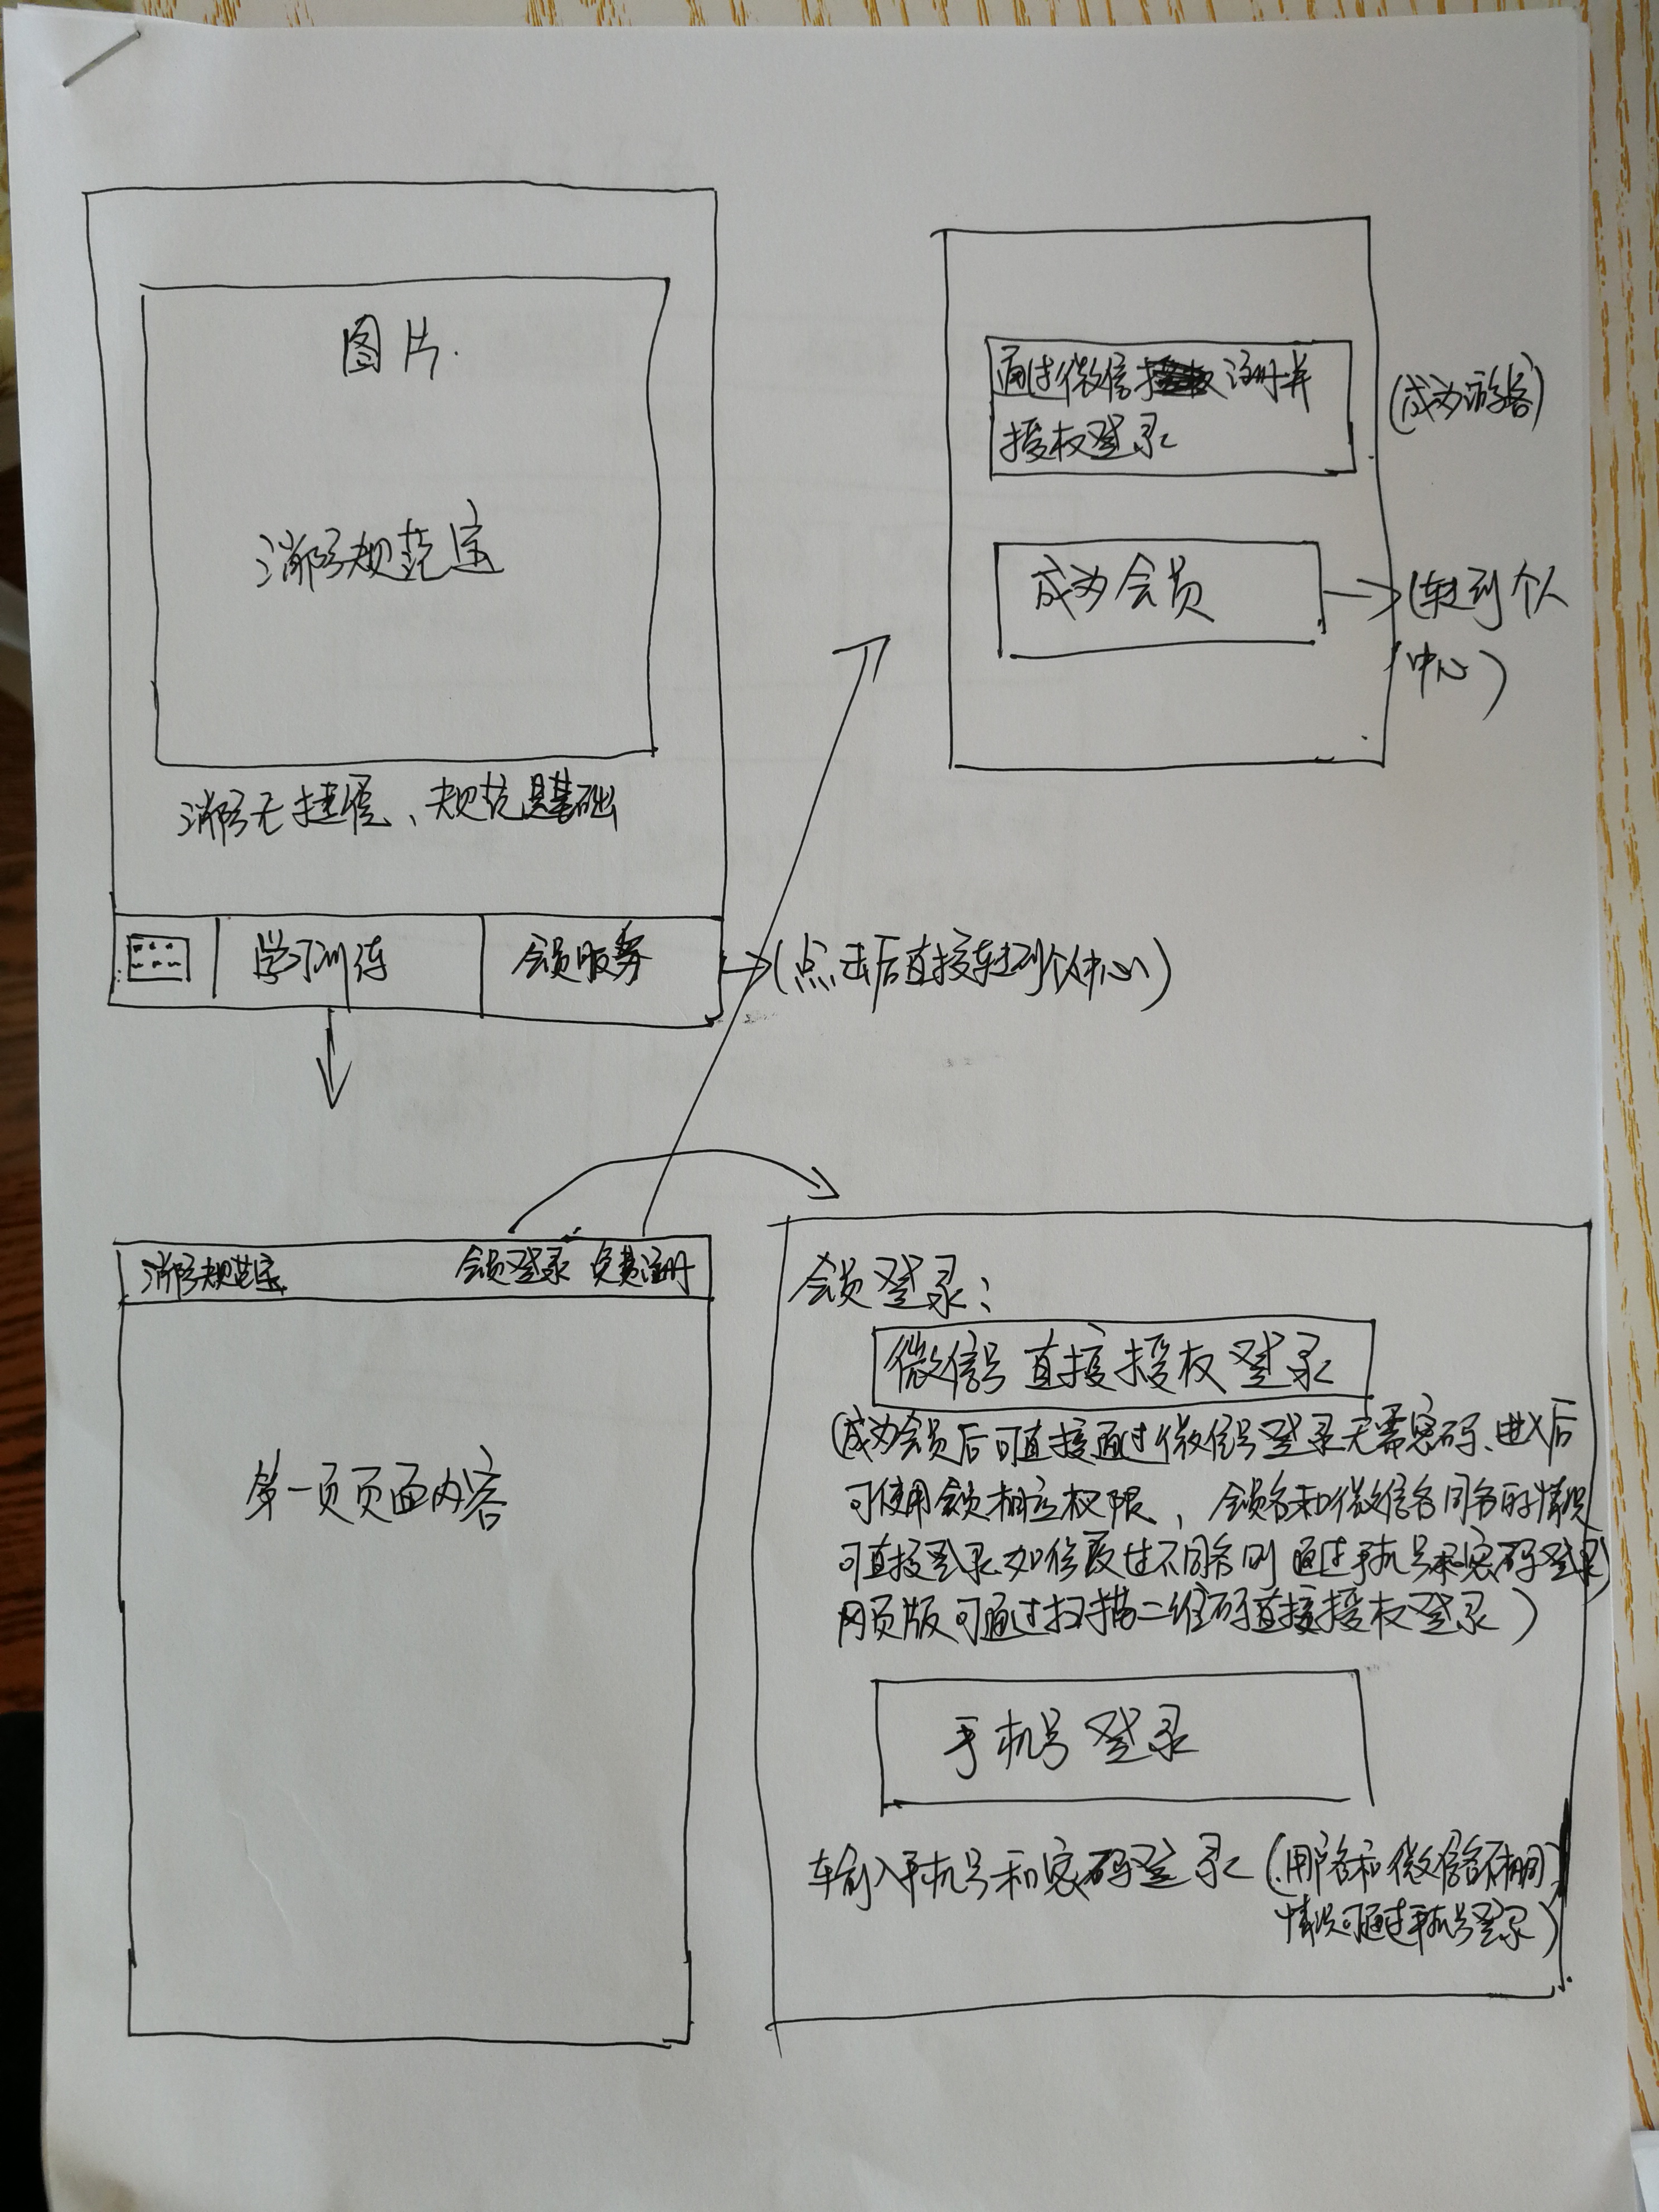 图片
消防规范宝
消防无捷径、规范是基础
学习训练
会员服务
(点击后直接转到个人中心)
通过微信注册并
授权登录
(成为游客)
成为会员
(转到个人
中心)
消防规范宝
会员登录 免费注册
第一页页面内容
会员登录:
微信号直接授权登录
(成为会员后可直接通过微信号登录无需密码、进入后
可使用会员相应权限、会员名和微信名同名的情况
可直接登录如修改过不同名则通过手机号和密码登录
网页版可通过扫描二维码直接授权登录)
手机号登录
输入手机号和密码登录(用户名和微信名不相同
情况可通过手机号登录)